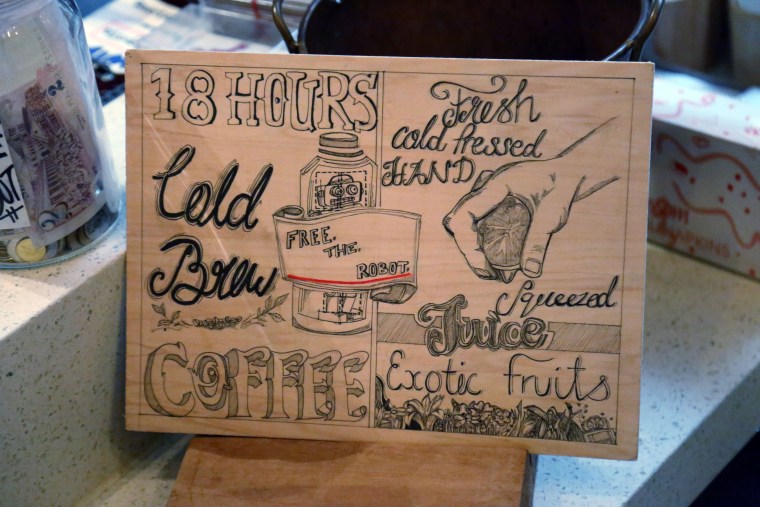 18 HOURS
Cold
Brew
COFFEE
FREE.
THE.
ROBOT.
Fresh
cold Pressed
HAND
Squeezed
Juice
Exotic fruits